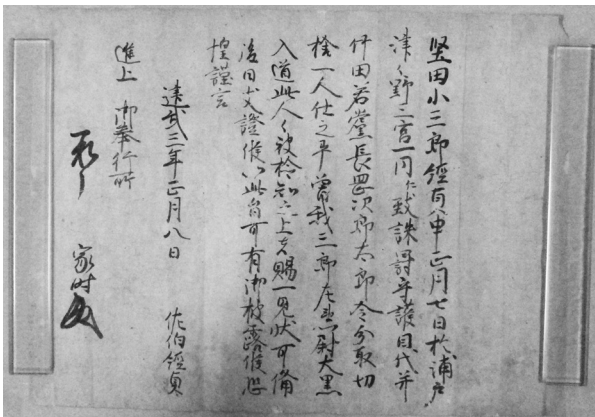 堅田小三郎經貞申正月七日於浦戸
津々野二宮一同仁致誅罸守護目代并
若黨長次郎太郎令分取切
捨一人仕之平曽我三郎左衛門尉大黒
入道此人々被検知之上者賜一見状可備
後日支證候以此旨可有御披露候恐
惶謹言
建武三年正月八日 佐伯經貞
進上 御奉行所
家時